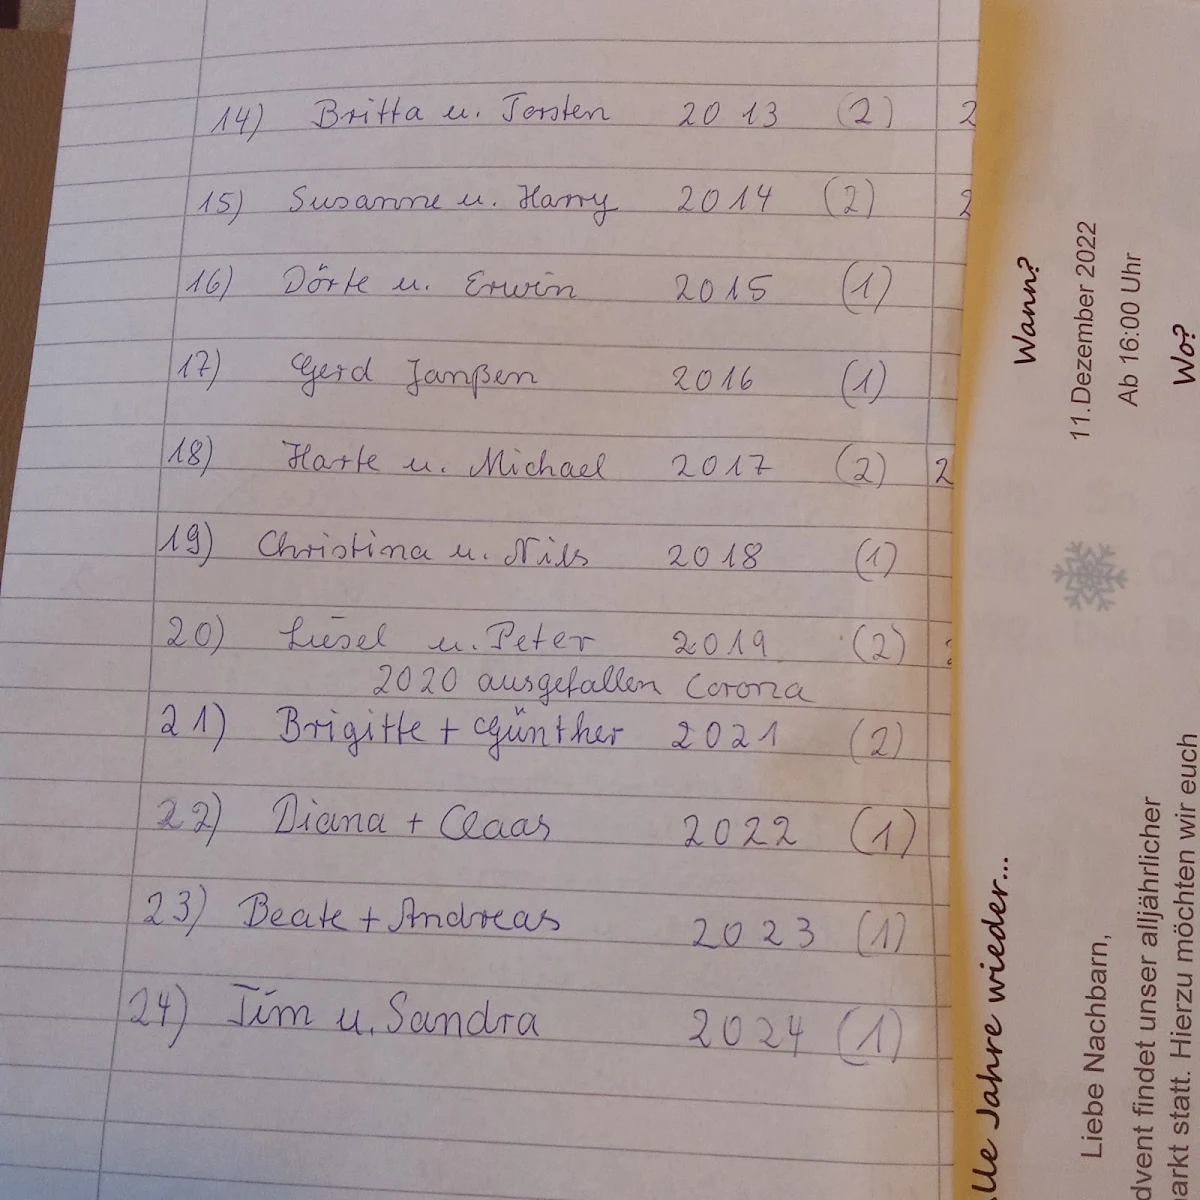 14) Britta u. Torsten 2013 (2) 2
15) Susanne u. Harry 2014 (2) 2
16) Dörte u. Erwin 2015 (1)
17) Gerd Janßen 2016 (1)
18) u. Michael 2017 (2) 2
19) Christina u. Nils 2018 (1)
20) Liesel u. Peter 2019 (2)
2020 ausgefallen Corona
21) Brigitte + Günther 2021 (2)
22) Diana + Claas 2022 (1)
23) Beate + Andreas 2023 (1)
24) Tim u. Sandra 2024 (1)
lle Jahre wieder...
Wann?
11.Dezember 2022
Ab 16:00 Uhr
Wo?
Liebe Nachbarn,
dvent findet unser alljährlicher
arkt statt. Hierzu möchten wir euch